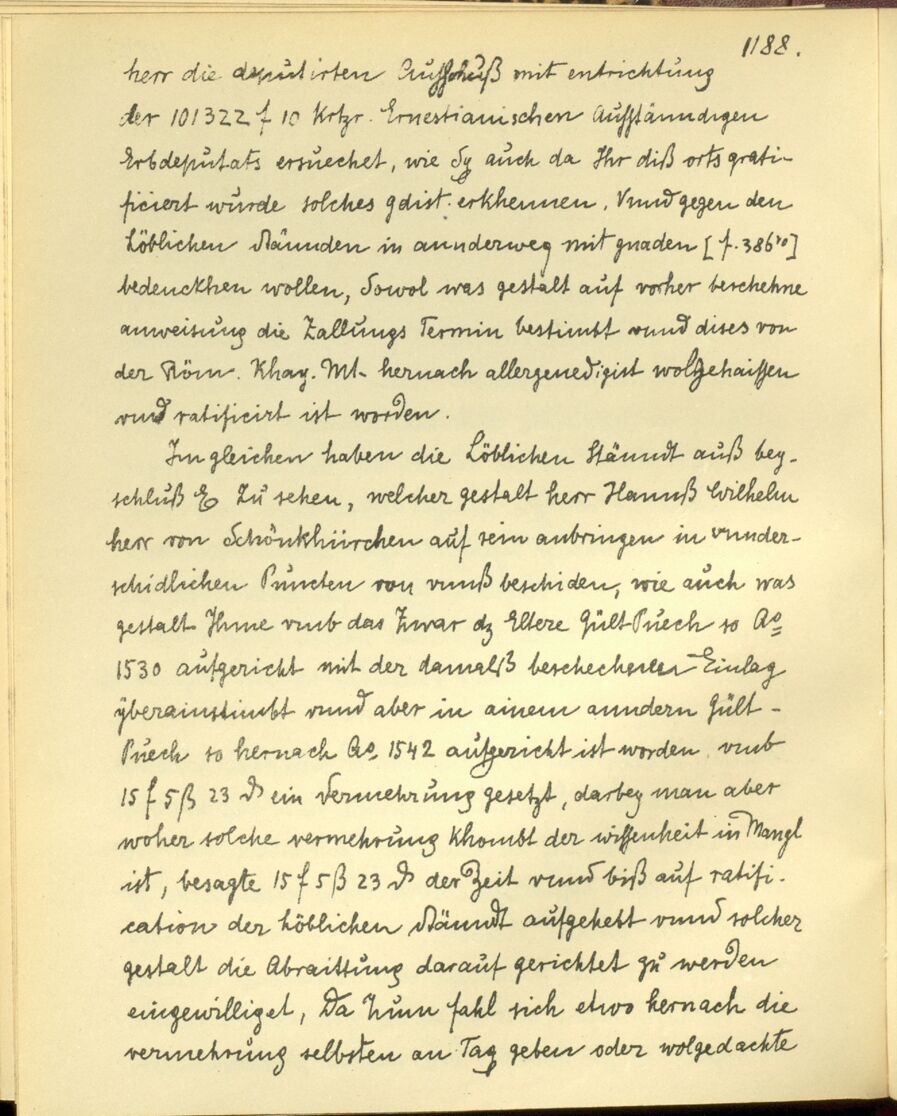 1188.
herr die deputirten Außschuß mit entrichtung
der 101322 f 10 Krtzr. Ernestianischen Außstänndigen
Erbdeputats ersuechet, wie Sy auch da Ihr diß orts grati-
ficiert wurde solches gdist. erkhennen, Vnnd gegen den
Löblichen Stännden in annderweg mit gnaden [f. 386ro]
bedenckhen wollen, Sowol was gestalt auf vorher beschehne
anweisung die Zallungs Termin bestimbt vnnd dises von
der Röm. Khay. Mt. hernach allergenedigist wolgehaissen
vnd ratificirt ist worden.
Im gleichen haben die Löblichen Stänndt auß bey-
schluß E Zu sehen, welcher gestalt herr Hannß Wilhelm
herr von Schönkhürchen auf sein anbringen in vnnder-
schidlichen Puncten von vnnß beschiden, wie auch was
gestalt Ihme vmb das Zwar dz Eltere Gült Puech so Ao
1530 aufgericht mit der damalß beschechenen Einlag
yberainstimbt vnnd aber in ainem anndern Gült-
Puech so hernach Ao. 1542 aufgericht ist worden, vmb
15 f 5 ß 23 ₰ ein Vermehrung gesetzt, darbey man aber
woher solche vermehrung khombt der wissenheit in Mangl
ist, besagte 15 f 5 ß 23 ₰ der Zeit vnnd biß auf ratifi-
cation der Löblichen Stänndt aufgehebt vnnd solcher
gestalt die Abraittung darauf gerichtet zu werden
eingewilliget, Da Zum fahl sich etwo hernach die
vermehrung selbsten an Tag geben oder wolgedachte